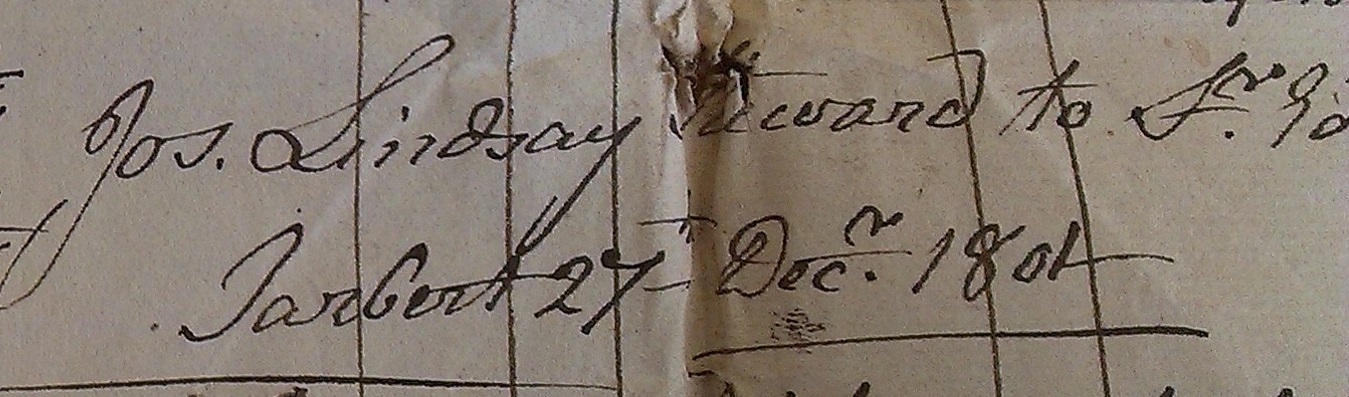 Jos. Lindsay Steward to Sr.
Tarbert 27th Decr. 1801